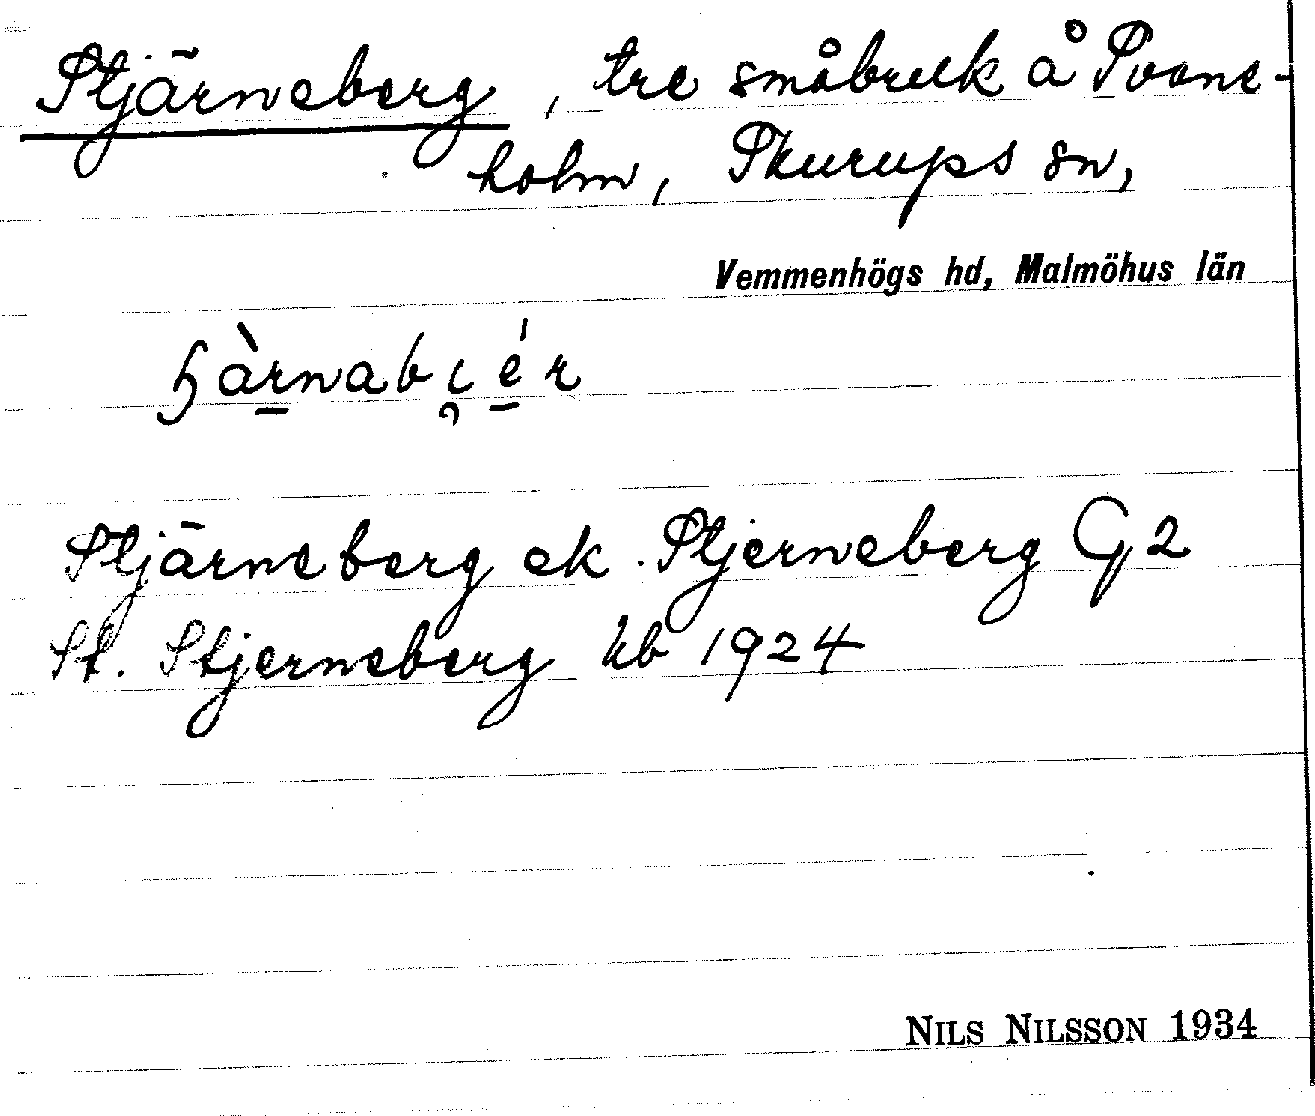 Stjärneberg, tre småbruk å Svane-
holm, Skurups sn,
Vemmenhögs hd, Malmöhus län
Stjärneberg ek. Stjerneberg G 2
St. Stjerneberg kb 1924
NILS NILSSON 1934